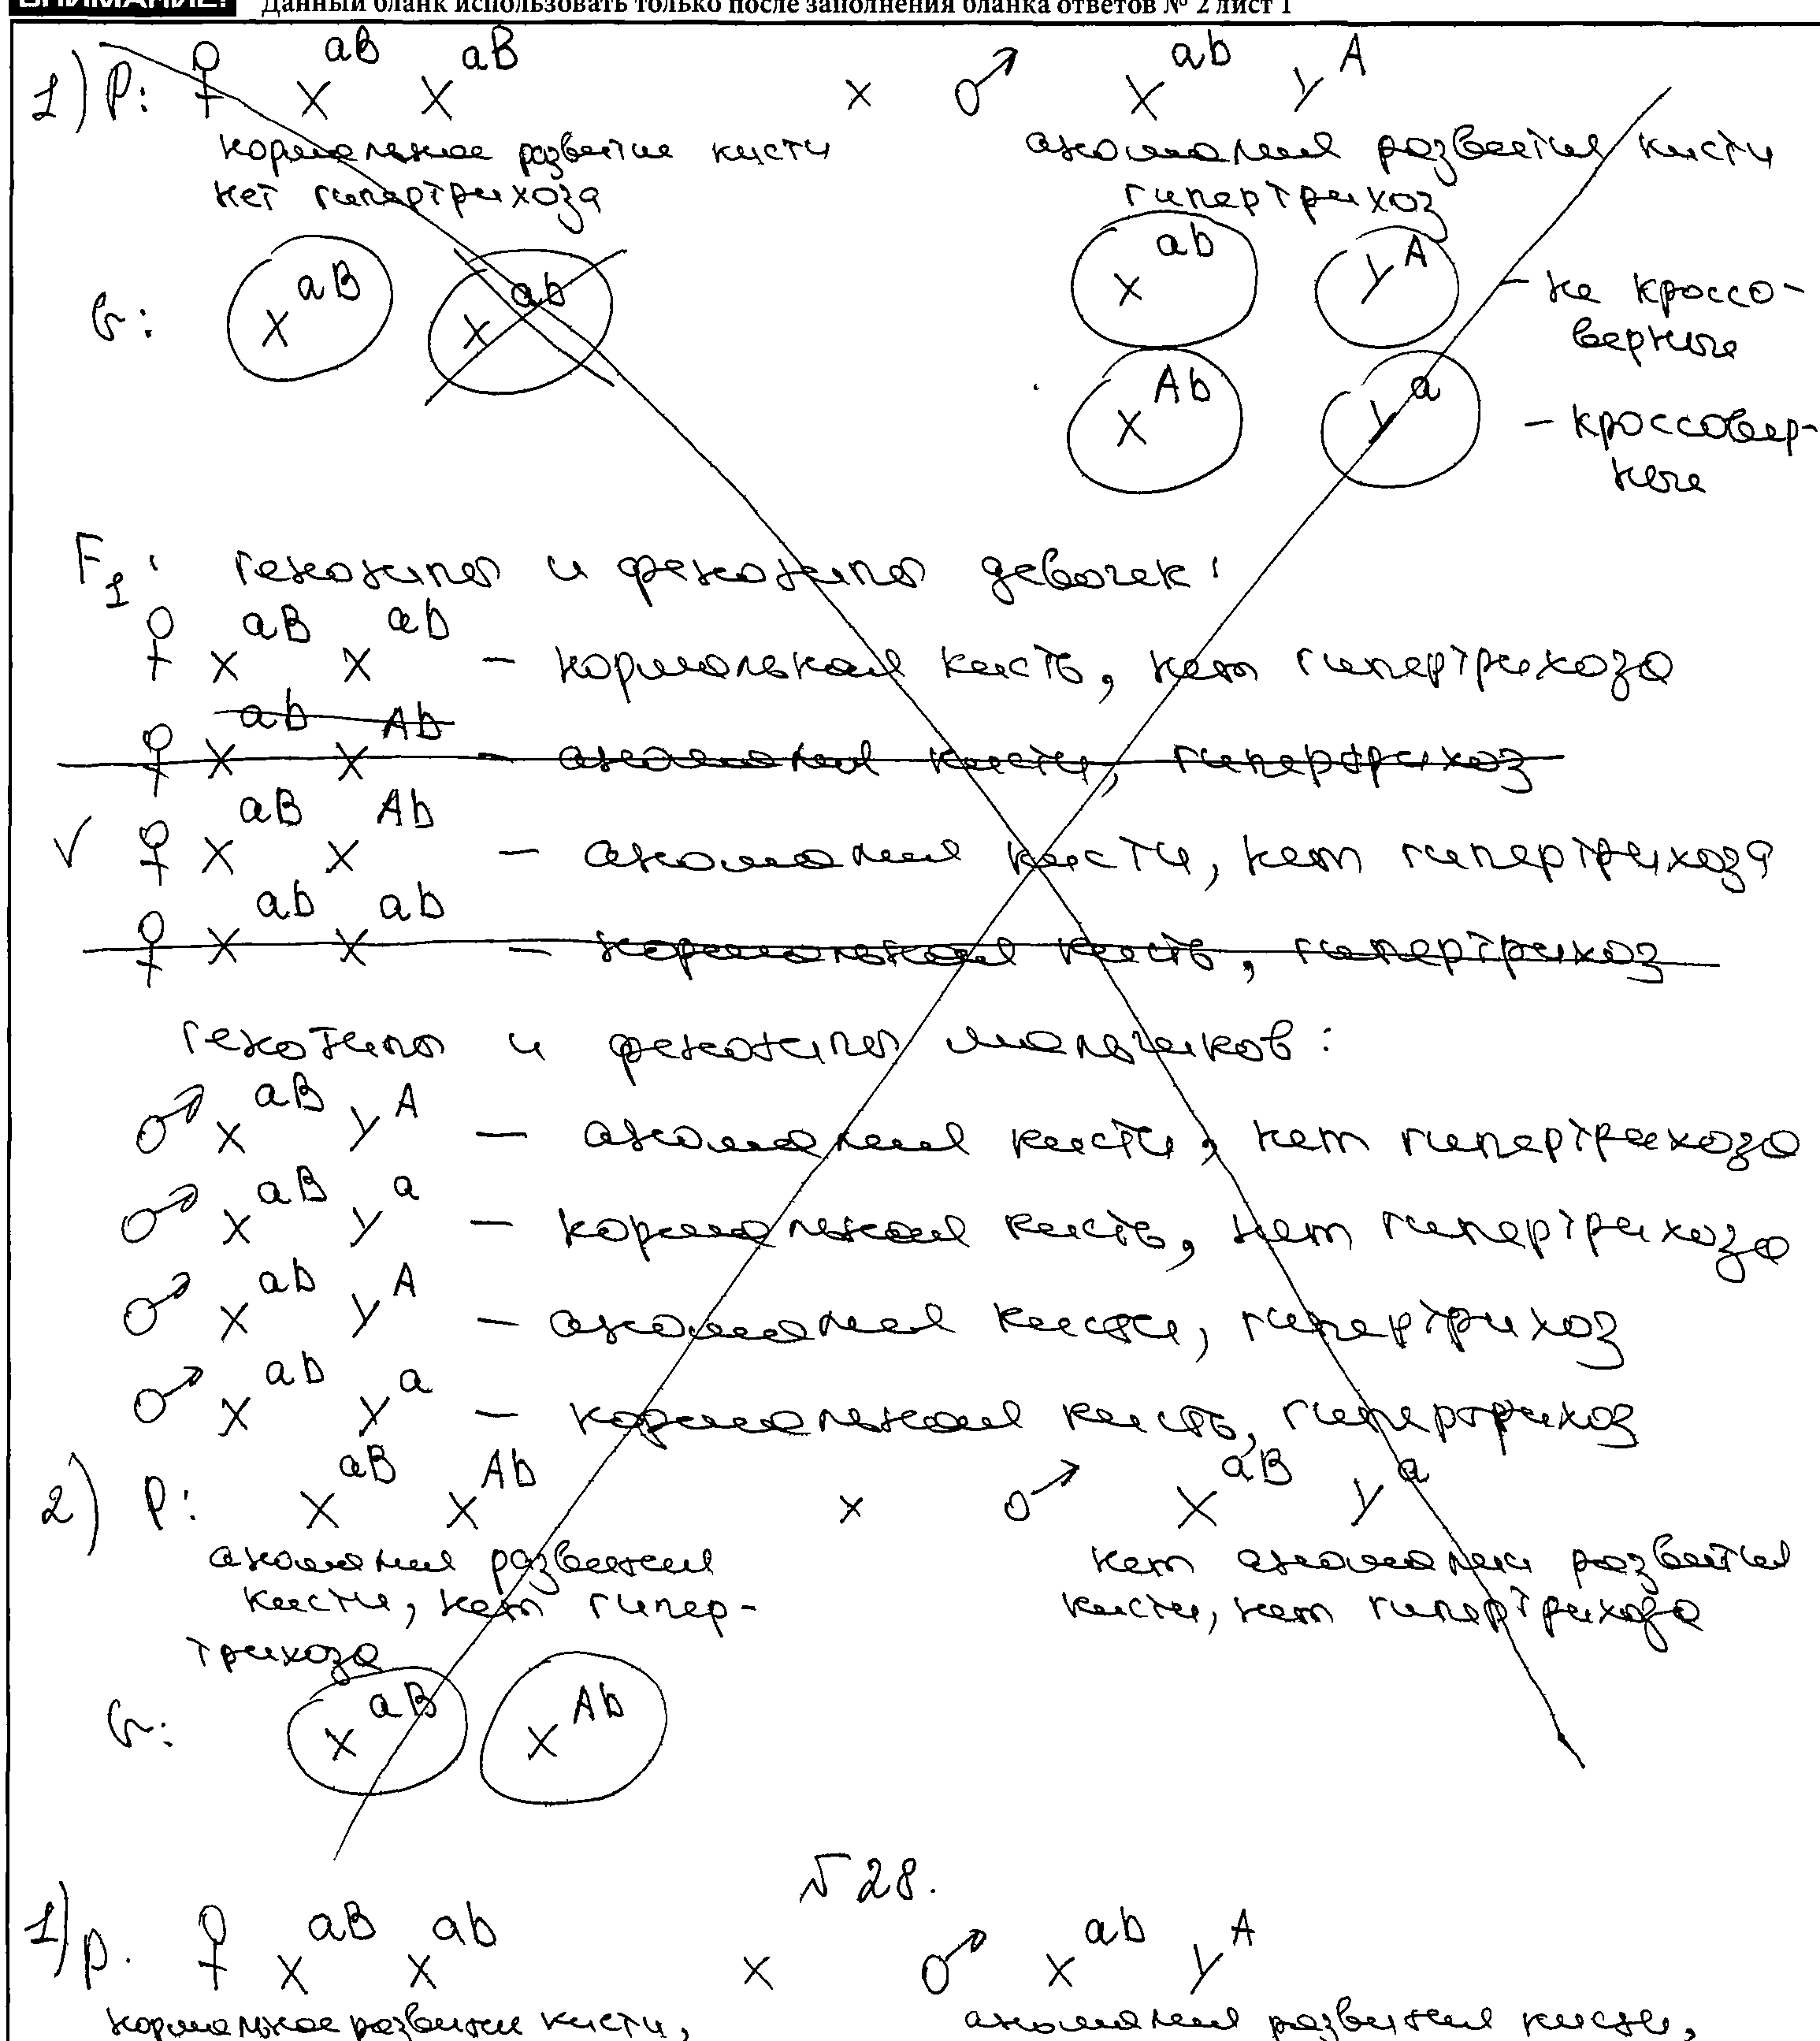 ВНИМАНИЕ! Данный бланк использовать только после заполнения бланка ответов № 2 лист 1
1) P: ♀ X^aB X^aB x ♂ X^ab Y^A
нормальное развитие кисти аномалия развития кисти
нет гипертрихоза гипертрихоз
G: X^aB X^ab X^ab Y^A - не кроссо-
верные
X^Ab Y^a - кроссовер-
ные
F1: генотипы и фенотипы девочек:
♀ X^aB X^ab - нормальная кисть, нет гипертрихоза
♀ X^ab X^Ab - аномалия кисти, гипертрихоз
√ ♀ X^aB X^Ab - аномалия кисти, нет гипертрихоза
♀ X^ab X^ab - нормальная кисть, гипертрихоз
генотипы и фенотипы мальчиков:
♂ X^aB Y^A - аномалия кисти, нет гипертрихоза
♂ X^aB Y^a - нормальная кисть, нет гипертрихоза
♂ X^ab Y^A - аномалия кисти, гипертрихоз
♂ X^ab Y^a - нормальная кисть, гипертрихоз
2) P: X^aB X^Ab x ♂ X^aB Y^a
аномалия развития нет аномалии развития
кисти, нет гипер- кисти, нет гипертрихоза
трихоза
G: X^aB X^Ab
№28.
1) P. ♀ X^aB X^ab x ♂ X^ab Y^A
нормальное развитие кисти, аномалия развития кисти,